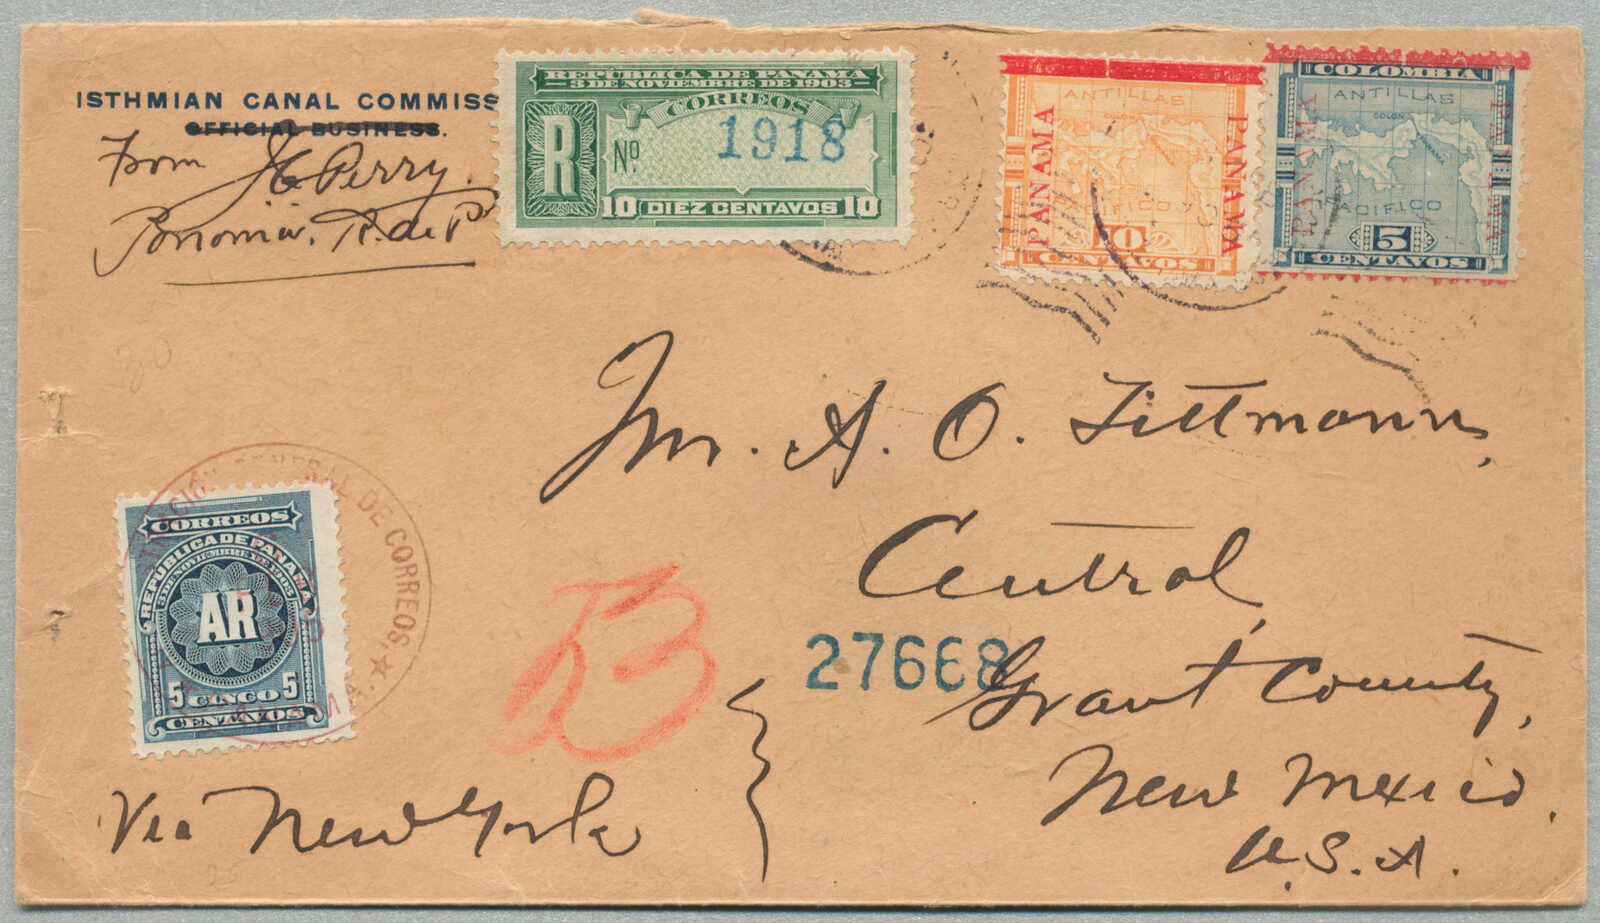 ISTHMIAN CANAL COMMISS
OFFICIAL BUSINESS.
From J C Perry.
Panama. R. de P
REPÚBLICA DE PANAMA
3 DE NOVIEMBRE DE 1903
CORREOS
R No. 1918
10 DIEZ CENTAVOS 10
ANTILLAS
PANAMA
PANAMA
PACIFICO
10
CENTAVOS
COLOMBIA
ANTILLAS
COLON
PANAMA
PANAMA
PANAMA
PACIFICO
5
CENTAVOS
Mr. A. O. Tittmann,
Central,
27668
Grant County,
New Mexico.
U.S.A.
GENERAL DE CORREOS.
CORREOS
REPUBLICA DE PANAMA
3 DE NOVIEMBRE DE 1903
AR
5 CINCO 5
CENTAVOS
Via New York